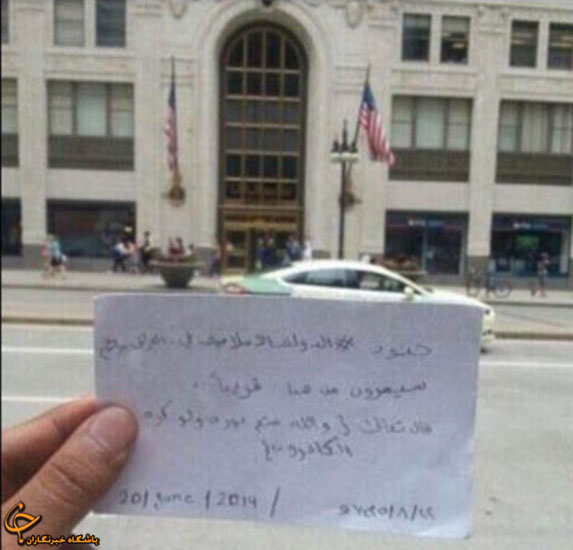 جنود #الدولة الاسلامية في
سيمرون من هنا قريباً.
قال تعالى { والله متم نوره ولو كره
الكافرون }
20/June/2014/
باشگاه خبرنگاران